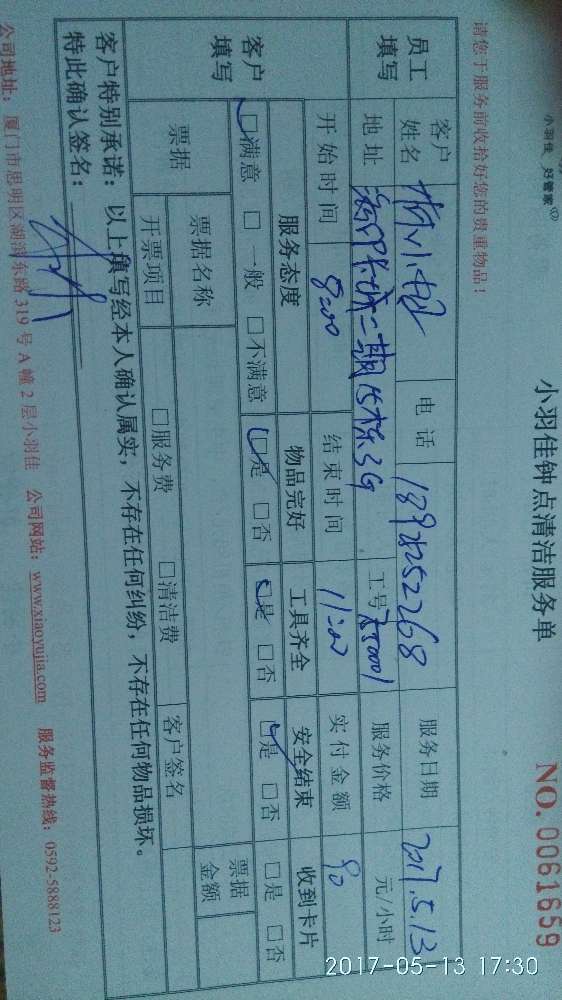 小羽佳 好管家
小羽佳钟点清洁服务单
NO. 0061659
请您于服务前收拾好您的贵重物品！
员工填写
客户姓名 电话 服务日期 2017.5.13
地址 二期15栋3G 工号 服务价格 元/小时
开始时间 8:00 结束时间 11:00 实付金额 90
客户填写
服务态度 物品完好 工具齐全 安全结束 收到卡片
□满意 □一般 □不满意 □是 □否 □是 □否 □是 □否 □是 □否
票据 票据名称 票据金额
开票项目 □服务费 □清洁费 客户签名
客户特别承诺：以上填写经本人确认属实，不存在任何纠纷，不存在任何物品损坏。
特此确认签名：
公司地址：厦门市思明区湖滨东路319号A幢2层小羽佳 公司网站：www.xiaoyujia.com 服务监督热线：0592-5888123
2017-05-13 17:30